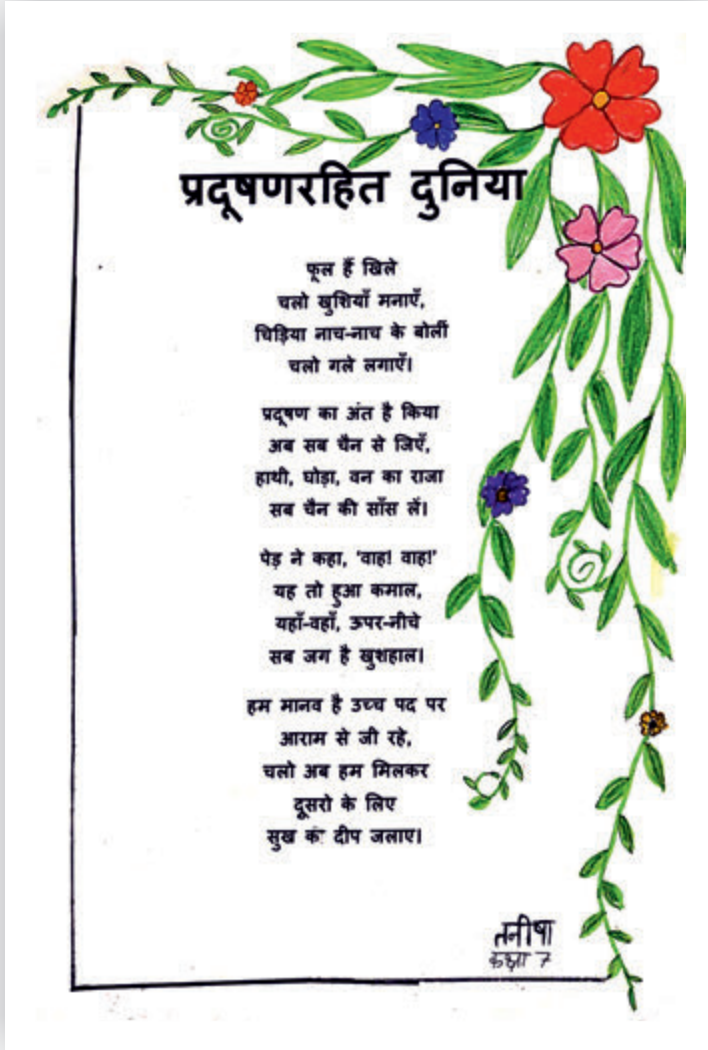 प्रदूषणरहित दुनिया
फूल हैं खिले
चलो खुशियाँ मनाएँ,
चिड़िया नाच-नाच के बोलीं
चलो गले लगाएँ।
प्रदूषण का अंत है किया
अब सब चैन से जिएँ,
हाथी, घोड़ा, वन का राजा
सब चैन की साँस लें।
पेड़ ने कहा, 'वाह! वाह!'
यह तो हुआ कमाल,
यहाँ-वहाँ, ऊपर-नीचे
सब जग है खुशहाल।
हम मानव है उच्च पद पर
आराम से जी रहे,
चलो अब हम मिलकर
दूसरो के लिए
सुख के दीप जलाए।
तनीषा
कक्षा 7